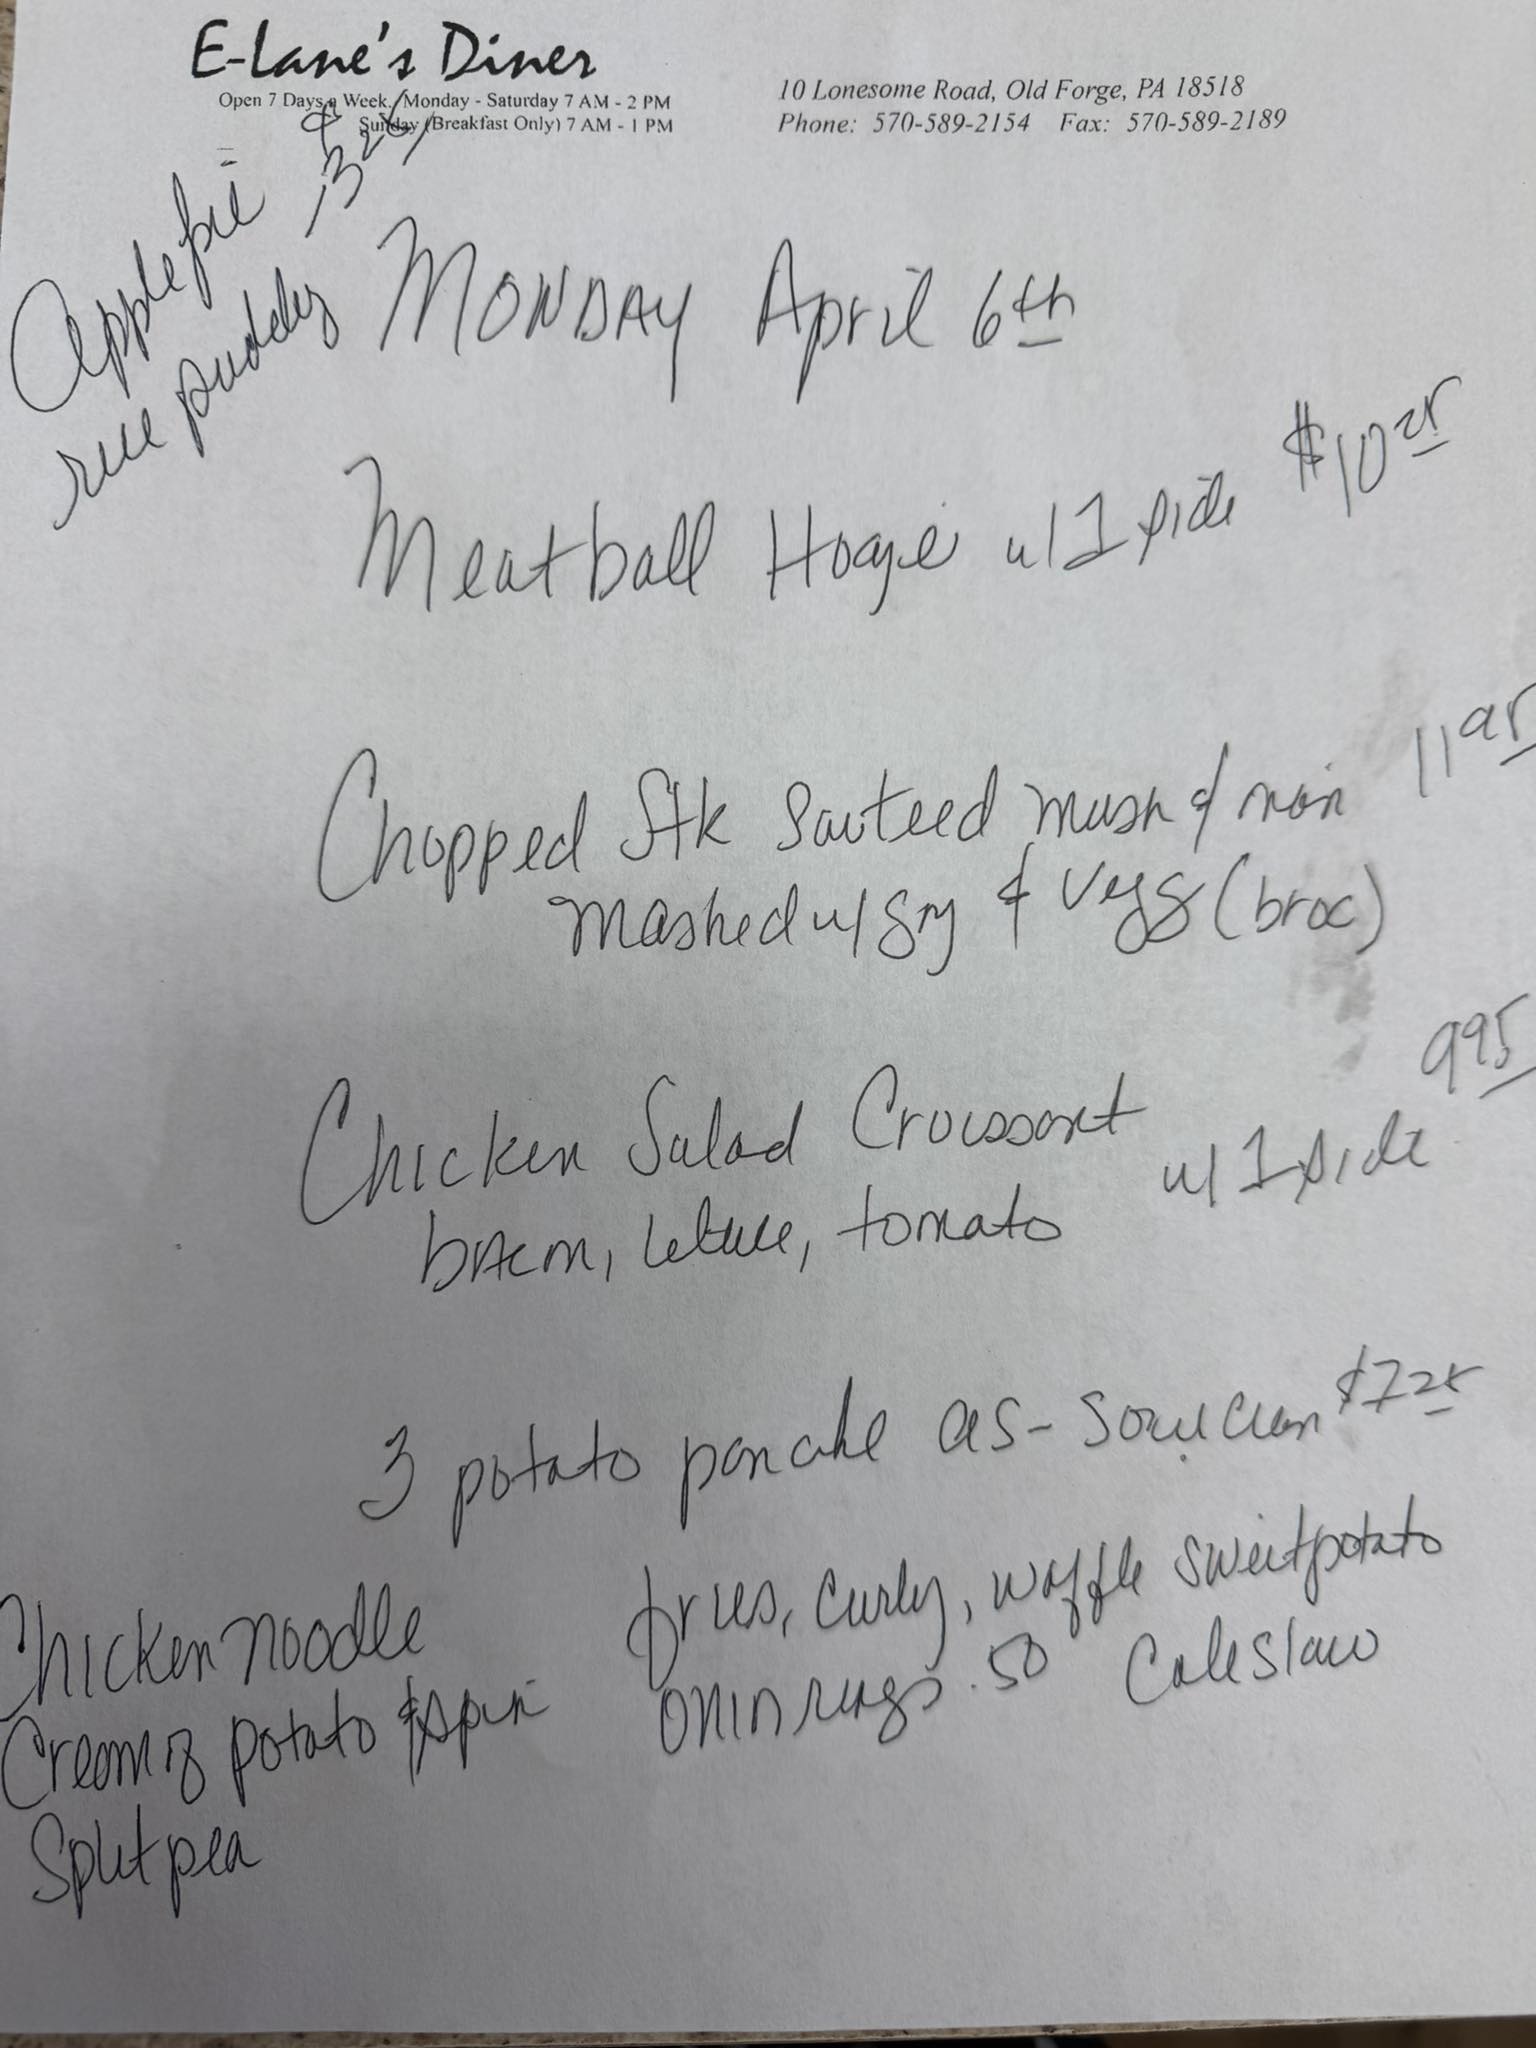 E-Lane's Diner
Open 7 Days a Week. Monday - Saturday 7 AM - 2 PM
Sunday (Breakfast Only) 7 AM - 1 PM
10 Lonesome Road, Old Forge, PA 18518
Phone: 570-589-2154 Fax: 570-589-2189
Apple pie
rice pudding
MONDAY April 6th
Meatball Hoagie w/1 side $10 25
Chopped Stk Sauteed mush & 11 95
mashed w/ gry & Vegg (broc)
Chicken Salad Croissant w/1 side 9 95
bacon, lettuce, tomato
3 potato pancake as - sour cream $7 25
fries, curly, waffle sweetpotato
onin rings .50 Coleslaw
Chicken noodle
Cream of potato & spin
Split pea